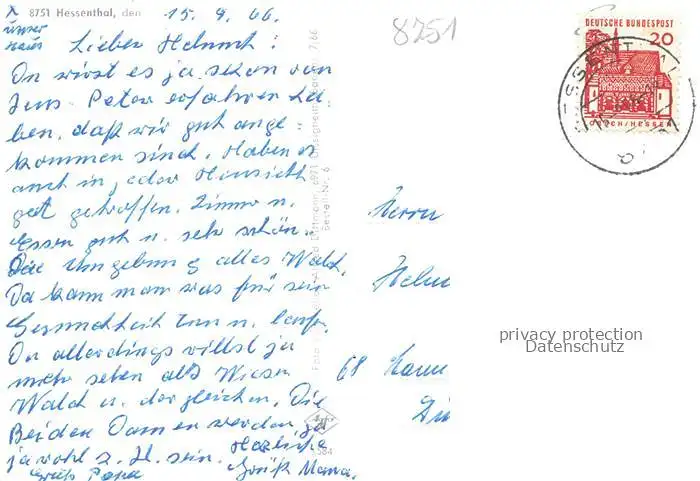 8751 Hessenthal, den 15. 9. 66.
x unser Haus
Lieber Helmut!
Du wirst es ja schon von
Jens-Peter erfahren ha
ben, daß wir gut ange
kommen sind. Haben es
auch in jeder Hinsicht
gut getroffen. Zimmer u.
Essen gut u. sehr schön.
Die Umgebung alles Wald.
Da kann man was für sein
Gesundheit tun u. laufen.
Du allerdings willst ja
mehr sehen als Wiesen
Wald u. dergleichen. Die
Beiden Damen werden ja
jawohl z. H. sein. Herzliche
Gruß Papa Grüße Mama.
8251
DEUTSCHE BUNDESPOST
20
LORSCH/HESSEN
Herrn
Helmu
68 Mann
privacy protection
Datenschutz
Bestell-Nr. 6